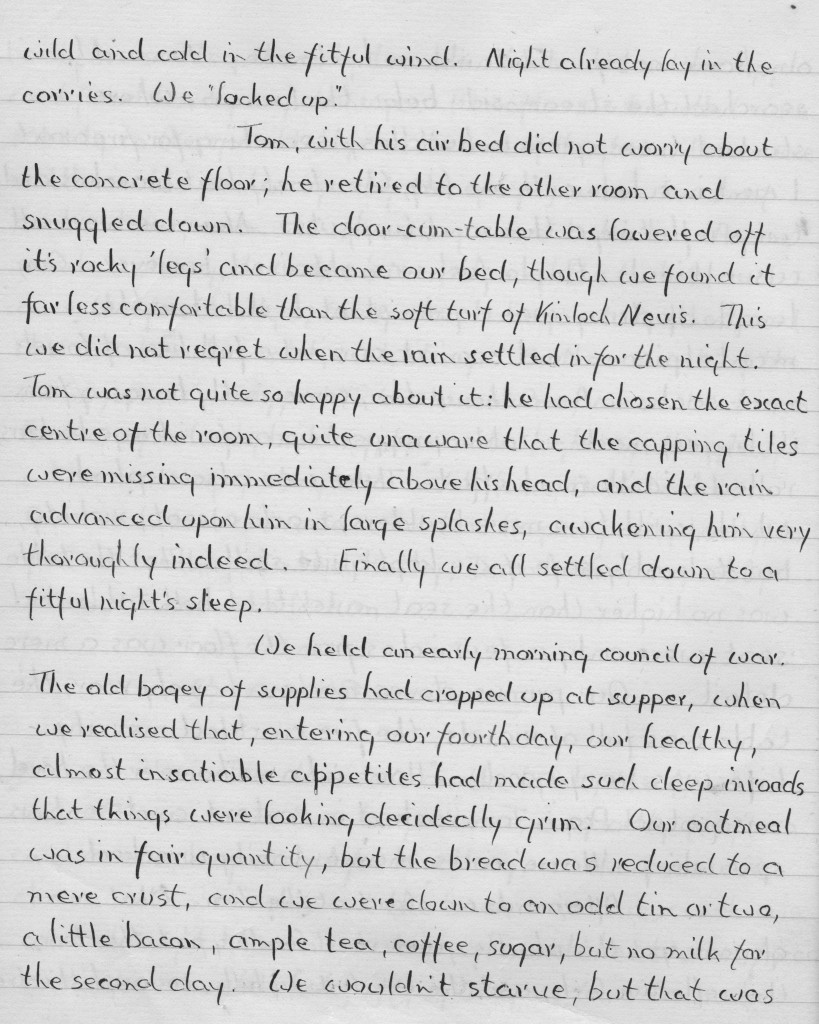 wild and cold in the fitful wind. Night already lay in the
corries. We "locked up."
Tom, with his air bed did not worry about
the concrete floor; he retired to the other room and
snuggled down. The door-cum-table was lowered off
it's rocky 'legs' and became our bed, though we found it
far less comfortable than the soft turf of Kinloch Nevis. This
we did not regret when the rain settled in for the night.
Tom was not quite so happy about it: he had chosen the exact
centre of the room, quite unaware that the capping tiles
were missing immediately above his head, and the rain
advanced upon him in large splashes, awakening him very
thoroughly indeed. Finally we all settled down to a
fitful night's sleep.
We held an early morning council of war.
The old bogey of supplies had cropped up at supper, when
we realised that, entering our fourth day, our healthy,
almost insatiable appetites had made such deep inroads
that things were looking decidedly grim. Our oatmeal
was in fair quantity, but the bread was reduced to a
mere crust, and we were down to an odd tin or two,
a little bacon, ample tea, coffee, sugar, but no milk for
the second day. We wouldn't starve, but that was